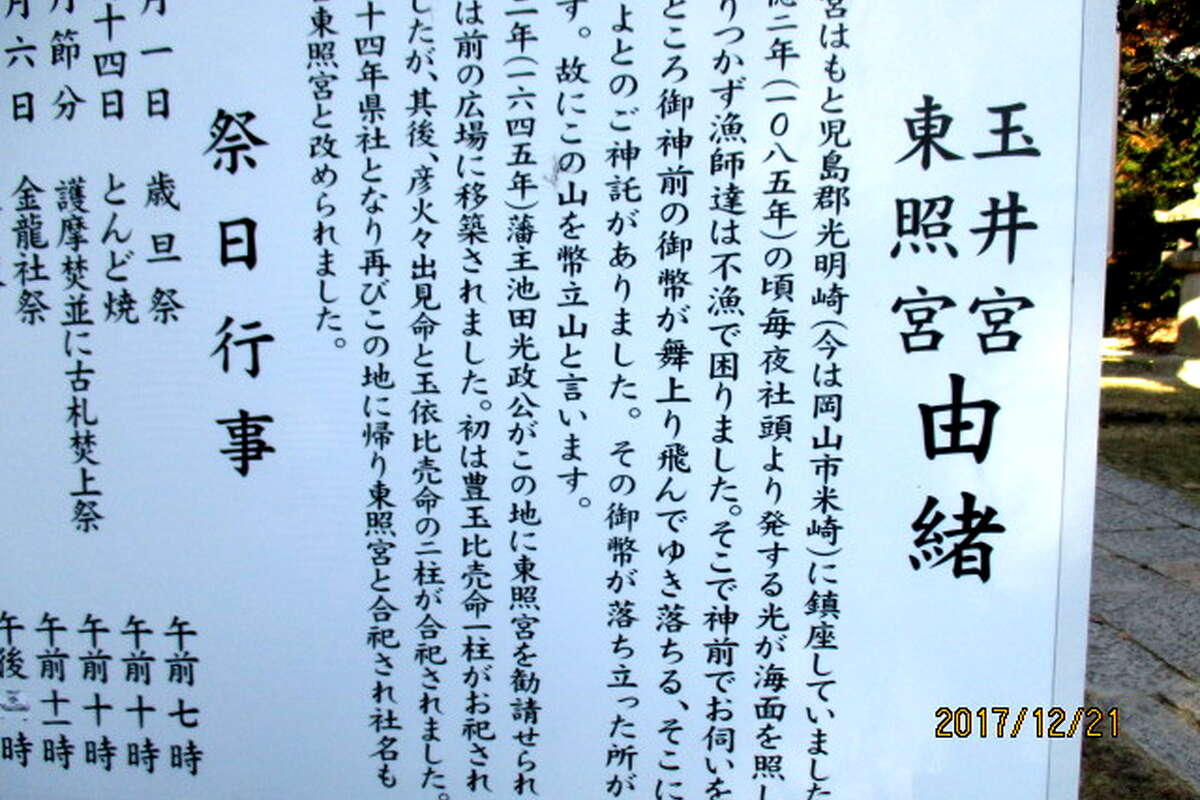 玉井宮
東照宮
由緒
宮はもと児島郡光明崎(今は岡山市米崎)に鎮座していました
徳二年(一〇八五年)の頃毎夜社頭より発する光が海面を照し
りつかず漁師達は不漁で困りました。そこで神前でお伺いを
ところ御神前の御幣が舞上り飛んでゆき落ちる、そこに
よとのご神託がありました。その御幣が落ち立った所が
す。故にこの山を幣立山と言います。
二年(一六四五年)藩主池田光政公がこの地に東照宮を勧請せられ
は前の広場に移築されました。初は豊玉比売命一柱がお祀され
したが、其後、彦火々出見命と玉依比売命の二柱が合祀されました。
十四年県社となり再びこの地に帰り東照宮と合祀され社名も
東照宮と改められました。
祭日行事
月一日 歳旦祭 午前七時
十四日 とんど焼 午前十時
月節分 護摩焚並に古札焚上祭 午前十時
月六日 金龍社祭 午前十一時
午後三時
2017/12/21